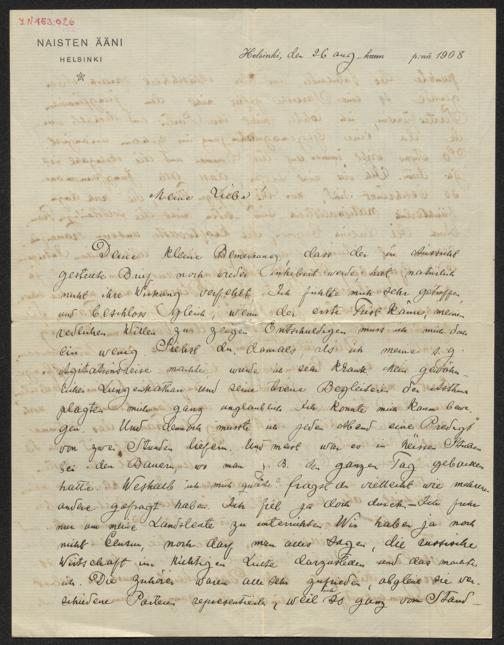 IN 153.026
NAISTEN ÄÄNI
HELSINKI
Helsinki, den 26 aug. p:nä 1908
Meine Liebe!
Deine kleine Bemerkung, dass der in Aussicht
gestellte Brief noch werde, hat natürlich
nicht ihre Wirkung verfehlt. Ich fühlte mich sehr getroffen
und beschloss sogleich, wenn der erste Frist käme, meinen
redlichen Willen zu zeigen. Entschuldigen muss ich mich doch
ein wenig. Siehst du, damals, als ich meine s. g.
Agitationsreise machte, wurde ich sehr krank. Mein gewöhn-
licher Lungenkatarrh und seine treue Begleiterin das Asthma
plagten mich ganz unglaublich. Ich konnte mich kaum bewe-
gen. Und dennoch musste ich jeden Abend eine "Predigt"
von zwei Stunden liefern. Und meist war es in heissen Stuben
bei den Bauern, wo man z. B. den ganzen Tag gebacken
hatte. Weshalb ich mich quäle? fragst du vielleicht wie mehrere
andere gefragt haben. Ich fiel ja doch durch. — Ich fuhr
nur um meine Landsleute zu unterrichten. Wir haben ja noch
nicht Censur, noch darf man alles sagen, die russische
Wirtschaft im richtigen Lichte darzustellen und das machte
ich. Die Zuhörer waren alle sehr zufrieden, obgleich sie ver-
schiedene Parteien representierten, weil ich es ganz vom Stand-